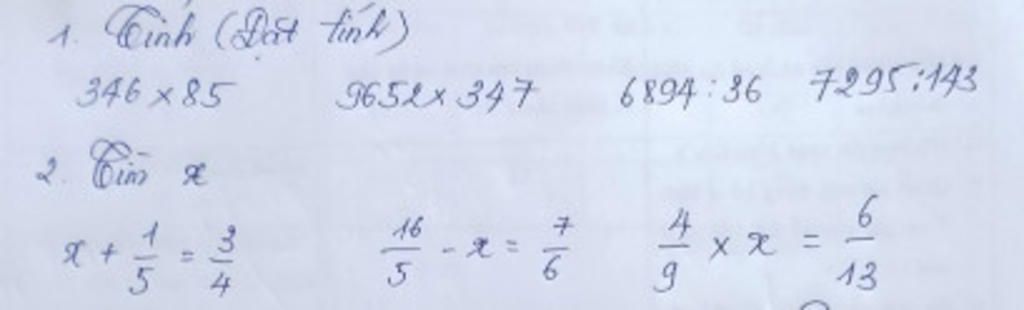 1. Tính (Đặt tính)
346 x 85 9652 x 347 6894 : 36 7295 : 143
2. Tìm x
x + 1/5 = 3/4 16/5 - x = 7/6 4/9 x x = 6/13